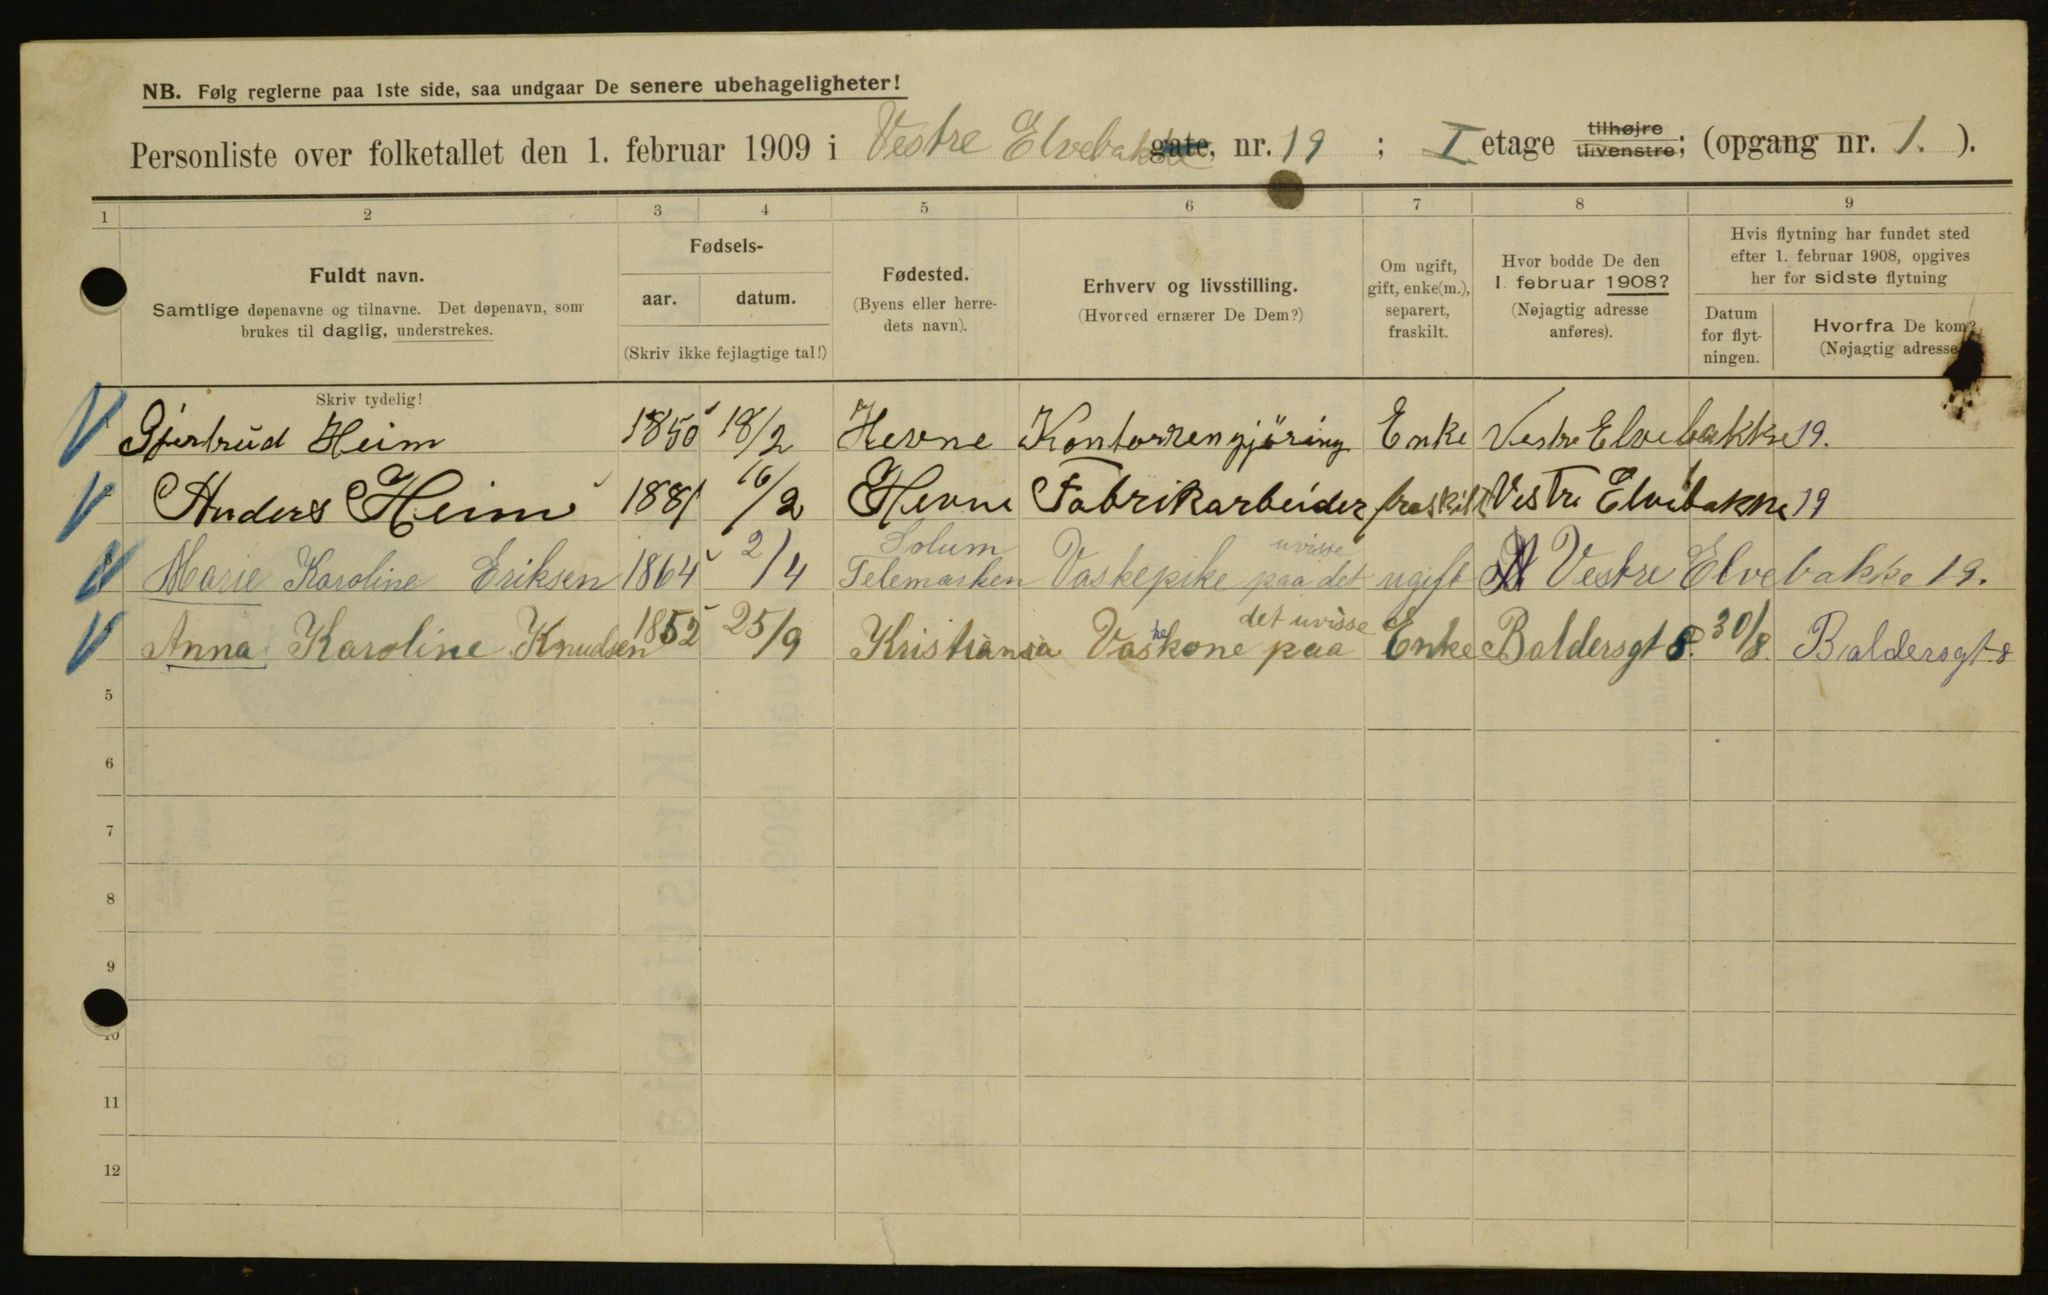 NB. Følg reglerne paa 1ste side, saa undgaar De senere ubehageligheter!
Personliste over folketallet den 1. februar 1909 i Vestre Elvebakke gate, nr. 19 ; I etage tilhøjre tilvenstre; (opgang nr. 1. ).
1 2 3 4 5 6 7 8 9
Fuldt navn.
Samtlige døpenavne og tilnavne. Det døpenavn, som
brukes til daglig, understrekes.
Skriv tydelig!
Fødsels-
aar. datum.
(Skriv ikke fejlagtige tal!)
Fødested.
(Byens eller herre-
dets navn).
Erhverv og livsstilling.
(Hvorved ernærer De Dem?)
Om ugift,
gift, enke(m.),
separert,
fraskilt.
Hvor bodde De den
1. februar 1908?
(Nøjagtig adresse
anføres).
Hvis flytning har fundet sted
efter 1. februar 1908, opgives
her for sidste flytning
Datum
for flyt-
ningen.
Hvorfra De kom?
(Nøjagtig adresse
Gjertrud Heim 1850 18/2 Hevne Kontorrengjøring Enke Vestre Elvebakke 19.
Anders Heim 1881 16/2 Hevne Fabrikarbeider fraskilt Vestre Elvebakke 19
Marie Karoline Eriksen 1864 2/4 Solum Telemarken Vaskepike paa det uvisse ugift Vestre Elvebakke 19.
Anna Karoline Knudsen 1852 25/9 Kristiania Vaskekone paa det uvisse Enke Baldersgt 8. 30/8. Baldersgt 8
5
6
7
8
9
10
11
12